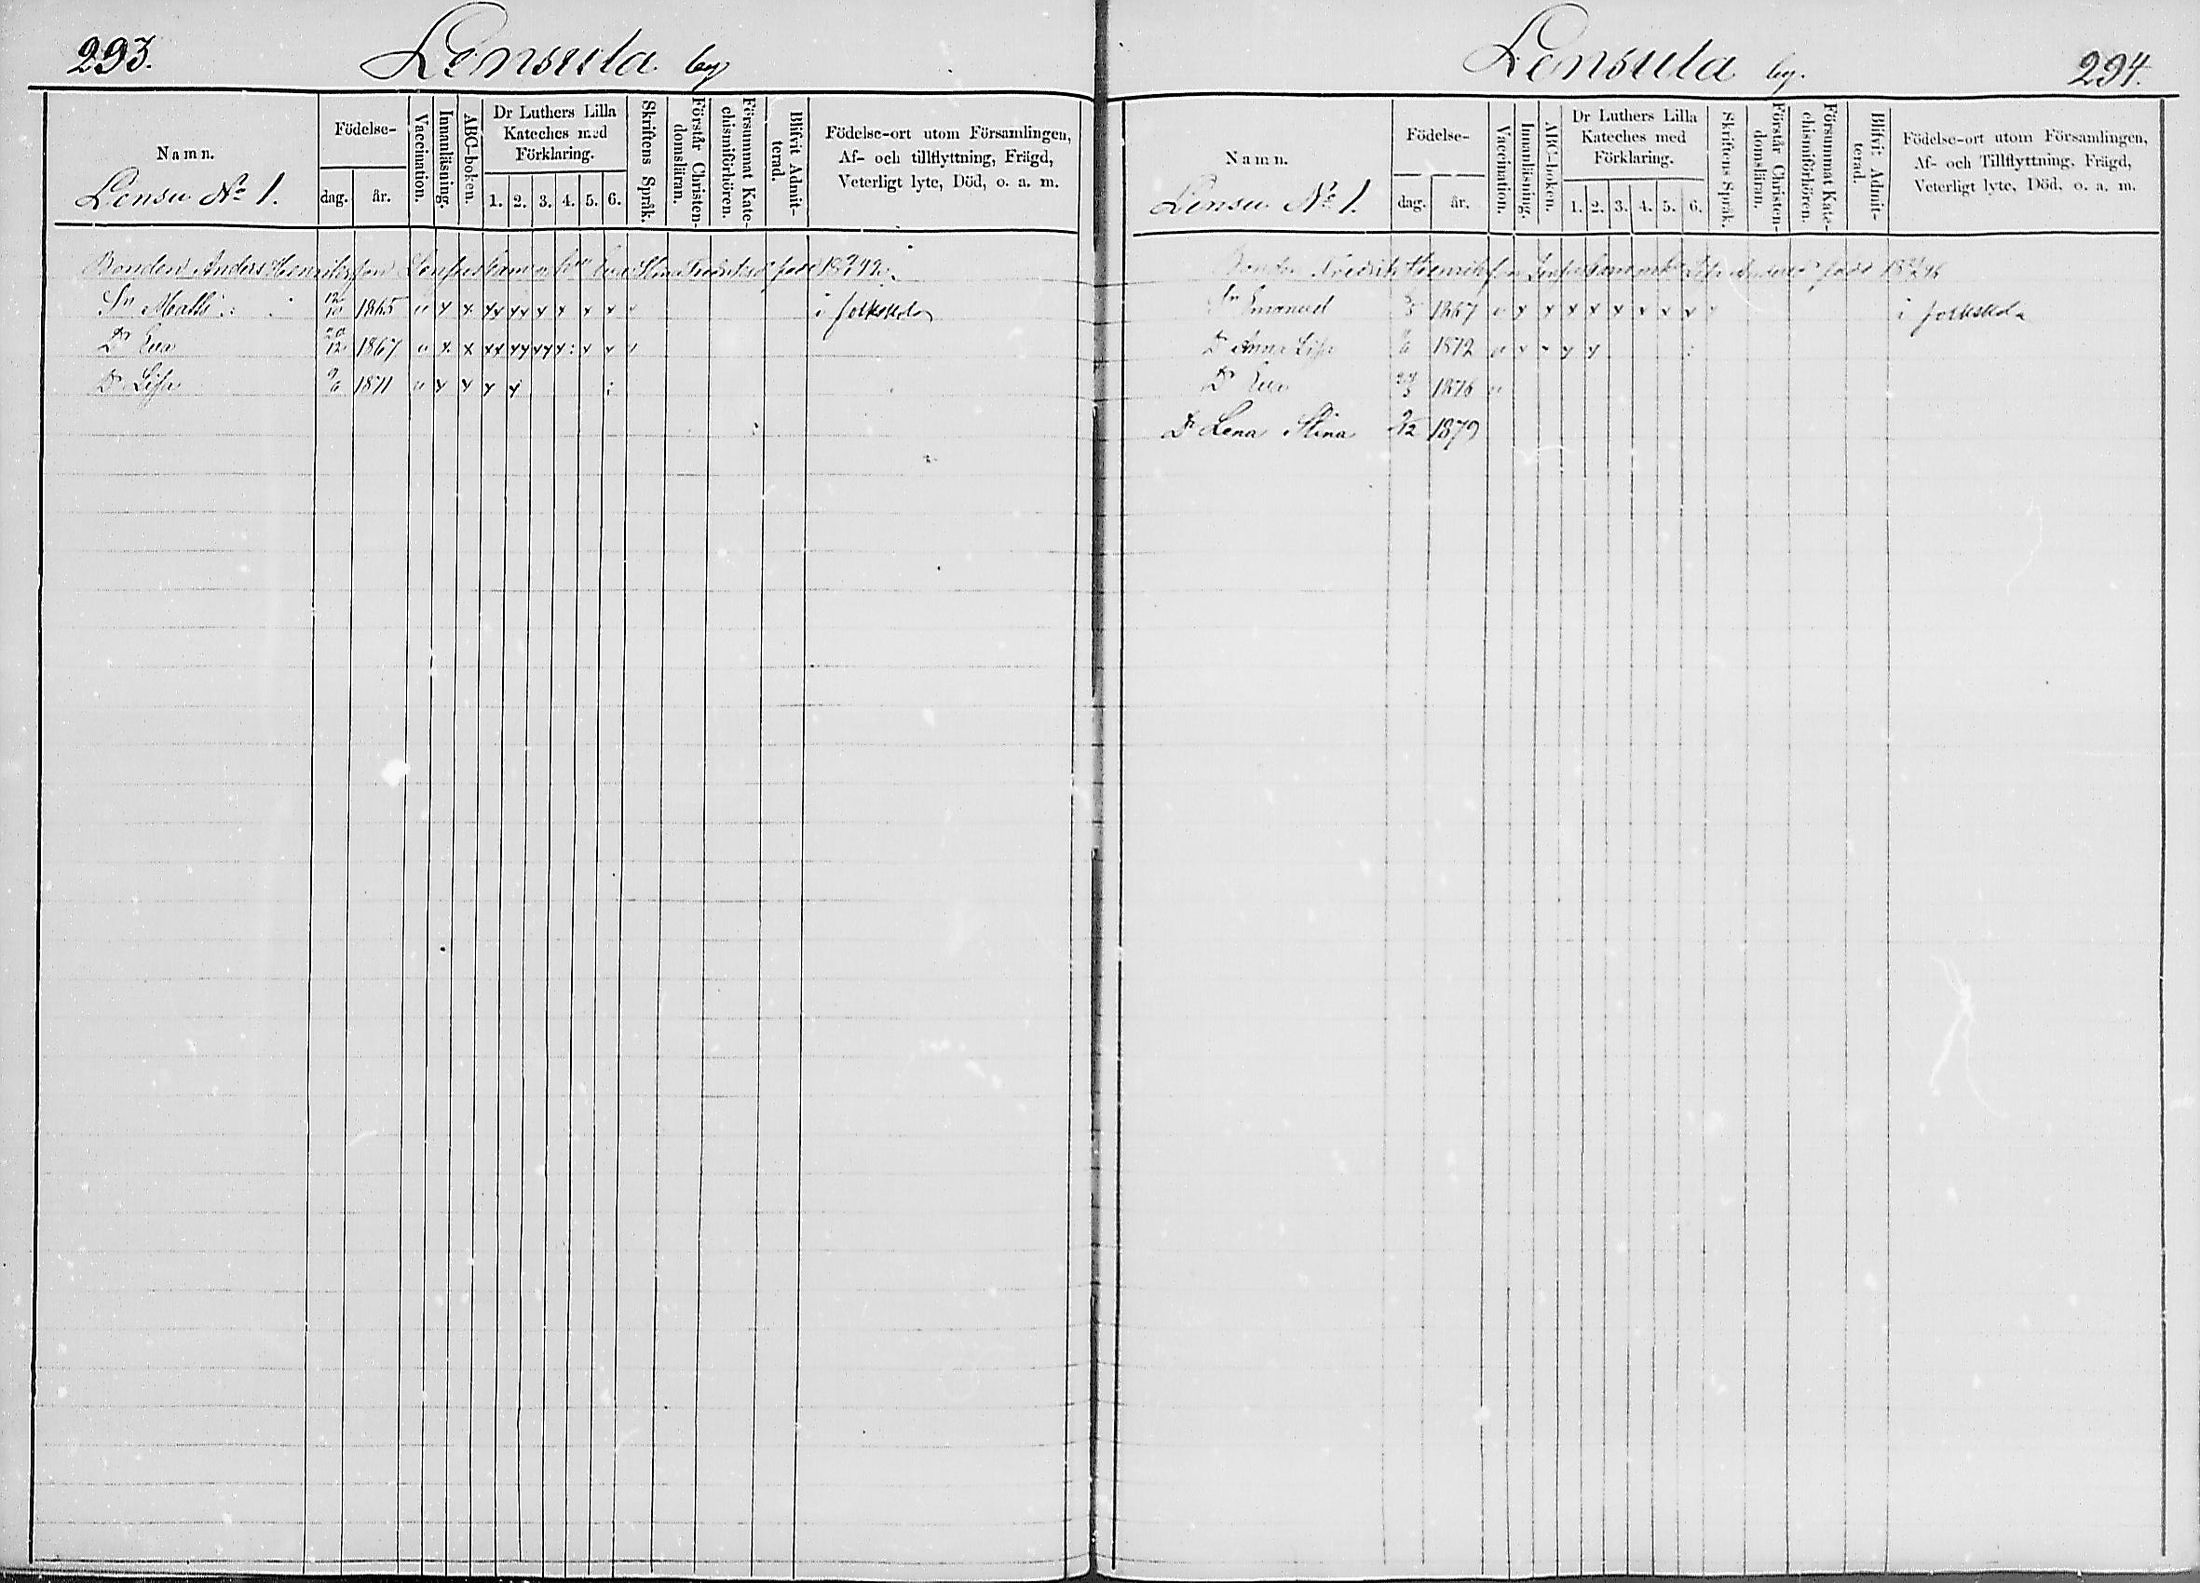 293.
Lensula by
Namn.
Födelse-
dag. år.
Vaccination.
Innanläsning.
ABC-boken.
Dr Luthers Lilla
Kateches med
Förklaring.
1. 2. 3. 4. 5. 6.
Skriftens Språk.
Förstår Christen-
domsläran.
Försummat Kate-
chismiförhören.
Blifvit Admit-
terad.
Födelse-ort utom Församlingen,
Af- och tillflyttning, Frägd,
Veterligt lyte, Död, o. a. m.
Lensu No 1.
Bonden Anders Henriksson
Sn Matts 1865 i folkskola
Dr Eva 20/12 1867
Dr Lisa 9/6 1871
Lensula by.
294.
Namn.
Födelse-
dag. år.
Vaccination.
Innanläsning.
ABC-boken.
Dr Luthers Lilla
Kateches med
Förklaring.
1. 2. 3. 4. 5. 6.
Skriftens Språk.
Förstår Christen-
domsläran.
Försummat Kate-
chismiförhören.
Blifvit Admit-
terad.
Födelse-ort utom Församlingen,
Af- och Tillflyttning, Frägd,
Veterligt lyte, Död, o. a. m.
Lensu No 1.
Bonden Fredrik Henriksson
Sn Emanuel 1867 i folkskola
Dr Anna Lisa 1872
Dr Eva 1876
Dr Lena Stina 1879